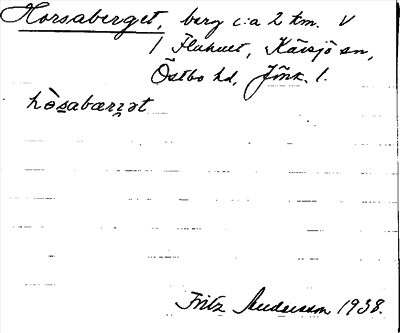 Horsaberget, berg c:a 2 km. V
/ Flahult, Kävsjö sn,
Östbo hd, Jönk. l.
hòsabærjət
Fritz Andersson 1938.